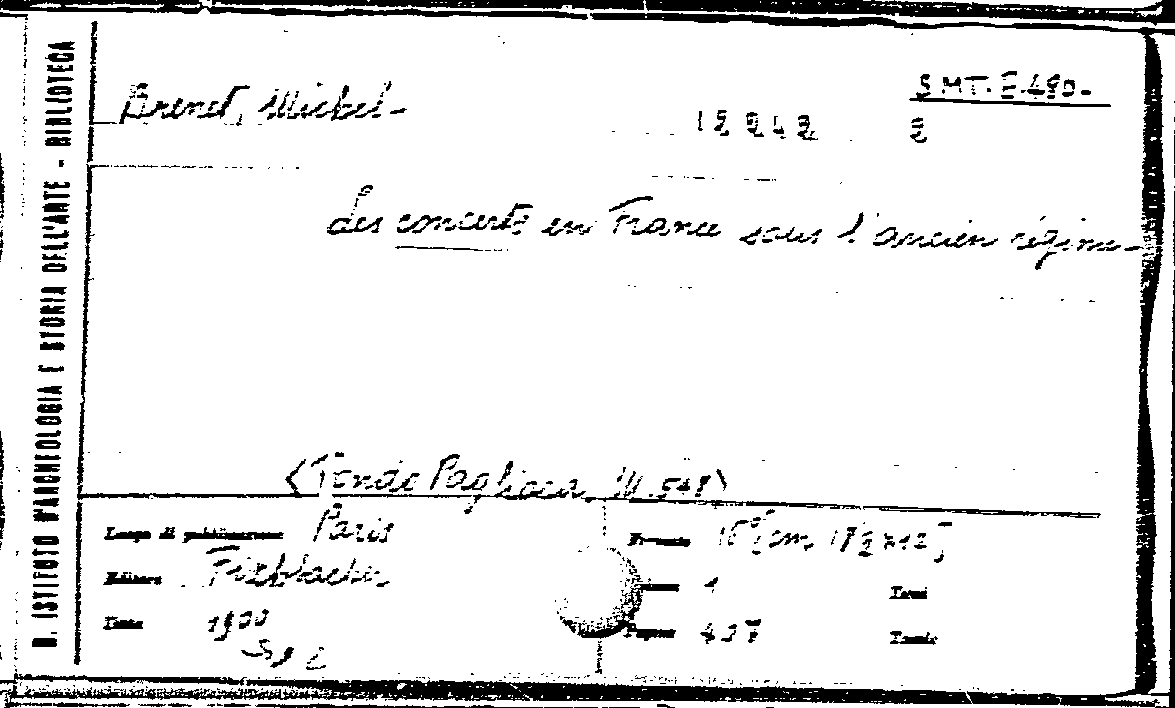 R. ISTITUTO D'ARCHEOLOGIA E STORIA DELL'ARTE - BIBLIOTECA
Brenet, Michel -
S.MT. E.490-
12242 2
Les concerts en France sous l'ancien régime -
<Fondo Pagliara, N. 548>
Luogo di pubblicazione Paris
Editore Fischbacher
Data 1900
Formato 16° [cm
1 Tomi
Pagine 407 Tavole